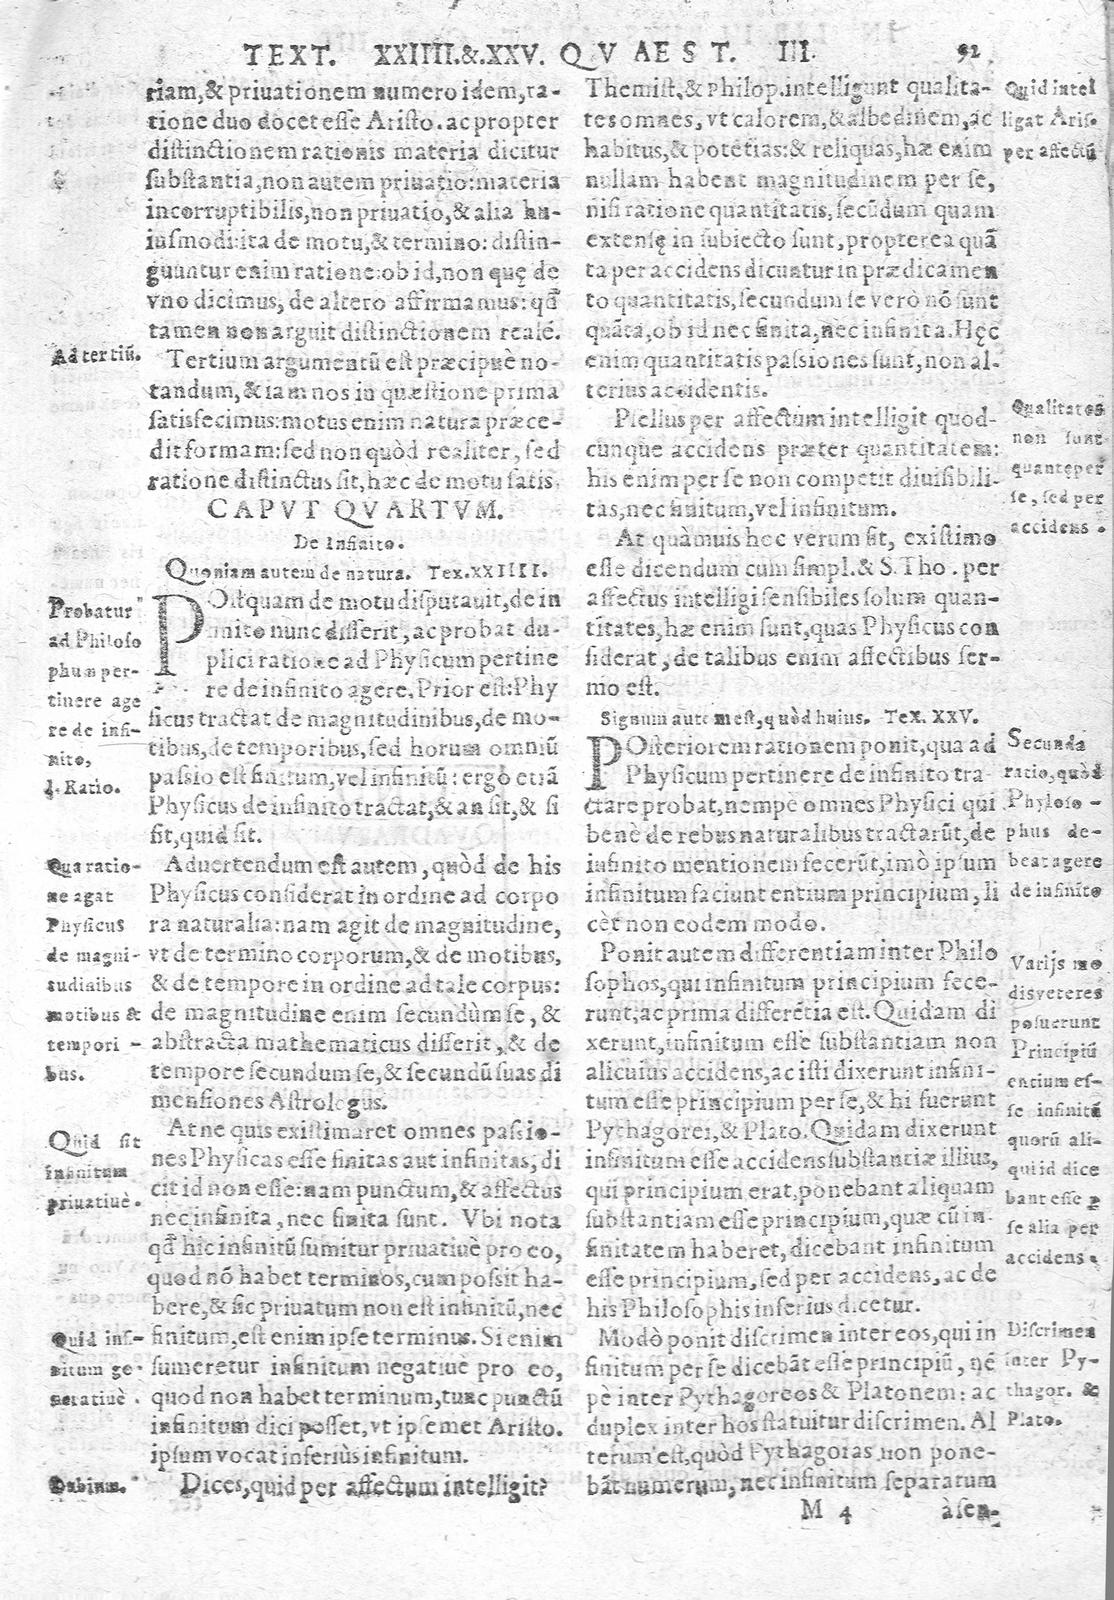 TEXT. XXIIII.&.XXV. QVAEST. III. 92
riam,& priuationem numero idem,ra-
tione duo docet esse Aristo. ac propter
distinctionem rationis materia dicitur
substantia,non autem priuatio:materia
incorruptibilis,non priuatio,& alia hu-
iusmodi:ita de motu,& termino: distin-
guuntur enim ratione:ob id,non quę de
vno dicimus, de altero affirmamus: qđ
tamen non arguit distinctionem realē.
Ad tertiū.
Tertium argumentū est præcipuè no-
tandum, & iam nos in quæstione prima
satisfecimus:motus enim natura præce-
dit formam:sed non quòd realiter, sed
ratione distinctus sit, hæc de motu satis.
CAPVT QVARTVM.
De Infinito.
Quoniam autem de natura. Tex.XXIIII.
Probatur
ad Philoso
phum per-
tinere age
re de infi-
nito,
1. Ratio.
POstquam de motu disputauit, de in
finito nunc disserit, ac probat du-
plici ratione ad Physicum pertine
re de infinito agere, Prior est: Phy
sicus tractat de magnitudinibus,de mo-
tibus,de temporibus, sed horum omniū
passio est finitum, vel infinitū: ergo etiā
Physicus de infinito tractat,& an sit,& si
sit,quid sit.
Qua ratio-
ne agat
Physicus
de magni-
tudinibus
motibus &
tempori-
bus.
Aduertendum est autem, quòd de his
Physicus considerat in ordine ad corpo
ra naturalia: nam agit de magnitudine,
vt de termino corporum,& de motibus,
& de tempore in ordine ad tale corpus:
de magnitudine enim secundùm se, &
abstracta mathematicus disserit, & de
tempore secundum se,& secundū suas di
mensiones Astrologus.
Quid sit
infinitum
priuatiuè.
At ne quis existimaret omnes passio-
nes Physicas esse finitas aut infinitas, di
cit id non esse: nam punctum,& affectus
nec infinita, nec finita sunt. Vbi nota
qđ hic infinitū sumitur priuatiuè pro eo,
quod nō habet terminos, cum possit ha-
bere,& sic priuatum non est infinitū,nec
Quid infi-
nitum ne-
gatiuè.
finitum,est enim ipse terminus. Si enim
sumeretur infinitum negatiuè pro eo,
quod non habet terminum, tunc punctū
infinitum dici posset, vt ipsemet Aristo.
ipsum vocat inferiùs infinitum.
Dubium.
Dices, quid per affectum intelligit?
Themist. & Philop. intelligunt qualita-
tes omnes, vt calorem,& albedinem, ac
habitus,& potētias: & reliquas,hæ enim
nullam habent magnitudinem per se,
nisi ratione quantitatis, secūdum quam
extensę in subiecto sunt, propterea quā
ta per accidens dicuntur in prædicamen
to quantitatis, secundum se verò nō sunt
quāta, ob id nec finita, nec infinita. Hęc
enim quantitatis passiones sunt, non al-
terius accidentis.
Quid intel
ligat Aris.
per affectū
Qualitates
non sunt
quantę per
se, sed per
accidens.
Psellus per affectum intelligit quod-
cunque accidens præter quantitatem:
his enim per se non competit diuisibili-
tas, nec finitum, vel infinitum.
At quàmuis hec verum sit, existimo
esse dicendum cum simpl. & S. Tho. per
affectus intelligi sensibiles solum quan-
titates, hæ enim sunt, quas Physicus con
siderat, de talibus enim affectibus ser-
mo est.
Signum autem est, quòd huius. Tex. XXV.
Secunda
ratio, quòd
Phyloso-
phus de-
beat agere
de infinito
POsteriorem rationem ponit, qua ad
Physicum pertinere de infinito tra-
ctare probat, nempè omnes Physici qui
benè de rebus naturalibus tractarūt, de
infinito mentionem fecerūt, imò ipsum
infinitum faciunt entium principium, li
cèt non eodem modo.
Varijs mo
dis veteres
posuerunt
Principiū
entium es-
se infinitū
quorū ali-
qui id dice
bant esse ꝑ
se alia per
accidens.
Ponit autem differentiam inter Philo
sophos, qui infinitum principium fece-
runt; ac prima differētia est. Quidam di
xerunt, infinitum esse substantiam non
alicuius accidens, ac isti dixerunt infini-
tum esse principium per se, & hi fuerunt
Pythagorei, & Plato. Quidam dixerunt
infinitum esse accidens substantiæ illius,
qui principium erat, ponebant aliquam
substantiam esse principium, quæ cū in-
finitatem haberet, dicebant infinitum
esse principium, sed per accidens, ac de
his Philosophis inferius dicetur.
Discrimen
inter Py-
thagor. &
Plato.
Modò ponit discrimen inter eos, qui in
finitum per se dicebāt esse principiū, nē
pè inter Pythagoreos & Platonem: ac
duplex inter hos statuitur discrimen. Al
terum est, quòd Pythagoras non pone-
bāt numerum, nec infinitum separatum
M 4 à sen-